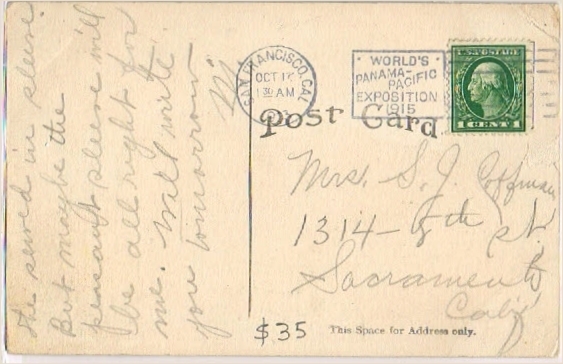 the sewed in sleeve.
But maybe the
peasant sleeve will
be all right for
me. Will write
you tomorrow.
M.
SAN FRANCISCO, CAL.
OCT
AM
WORLD'S
PANAMA-
PACIFIC
EXPOSITION
1915
U.S. POSTAGE
1 CENT 1
Post Card
Mrs. S. J. Coffman
1314 - 8th St
Sacramento
Calif
$35
This Space for Address only.